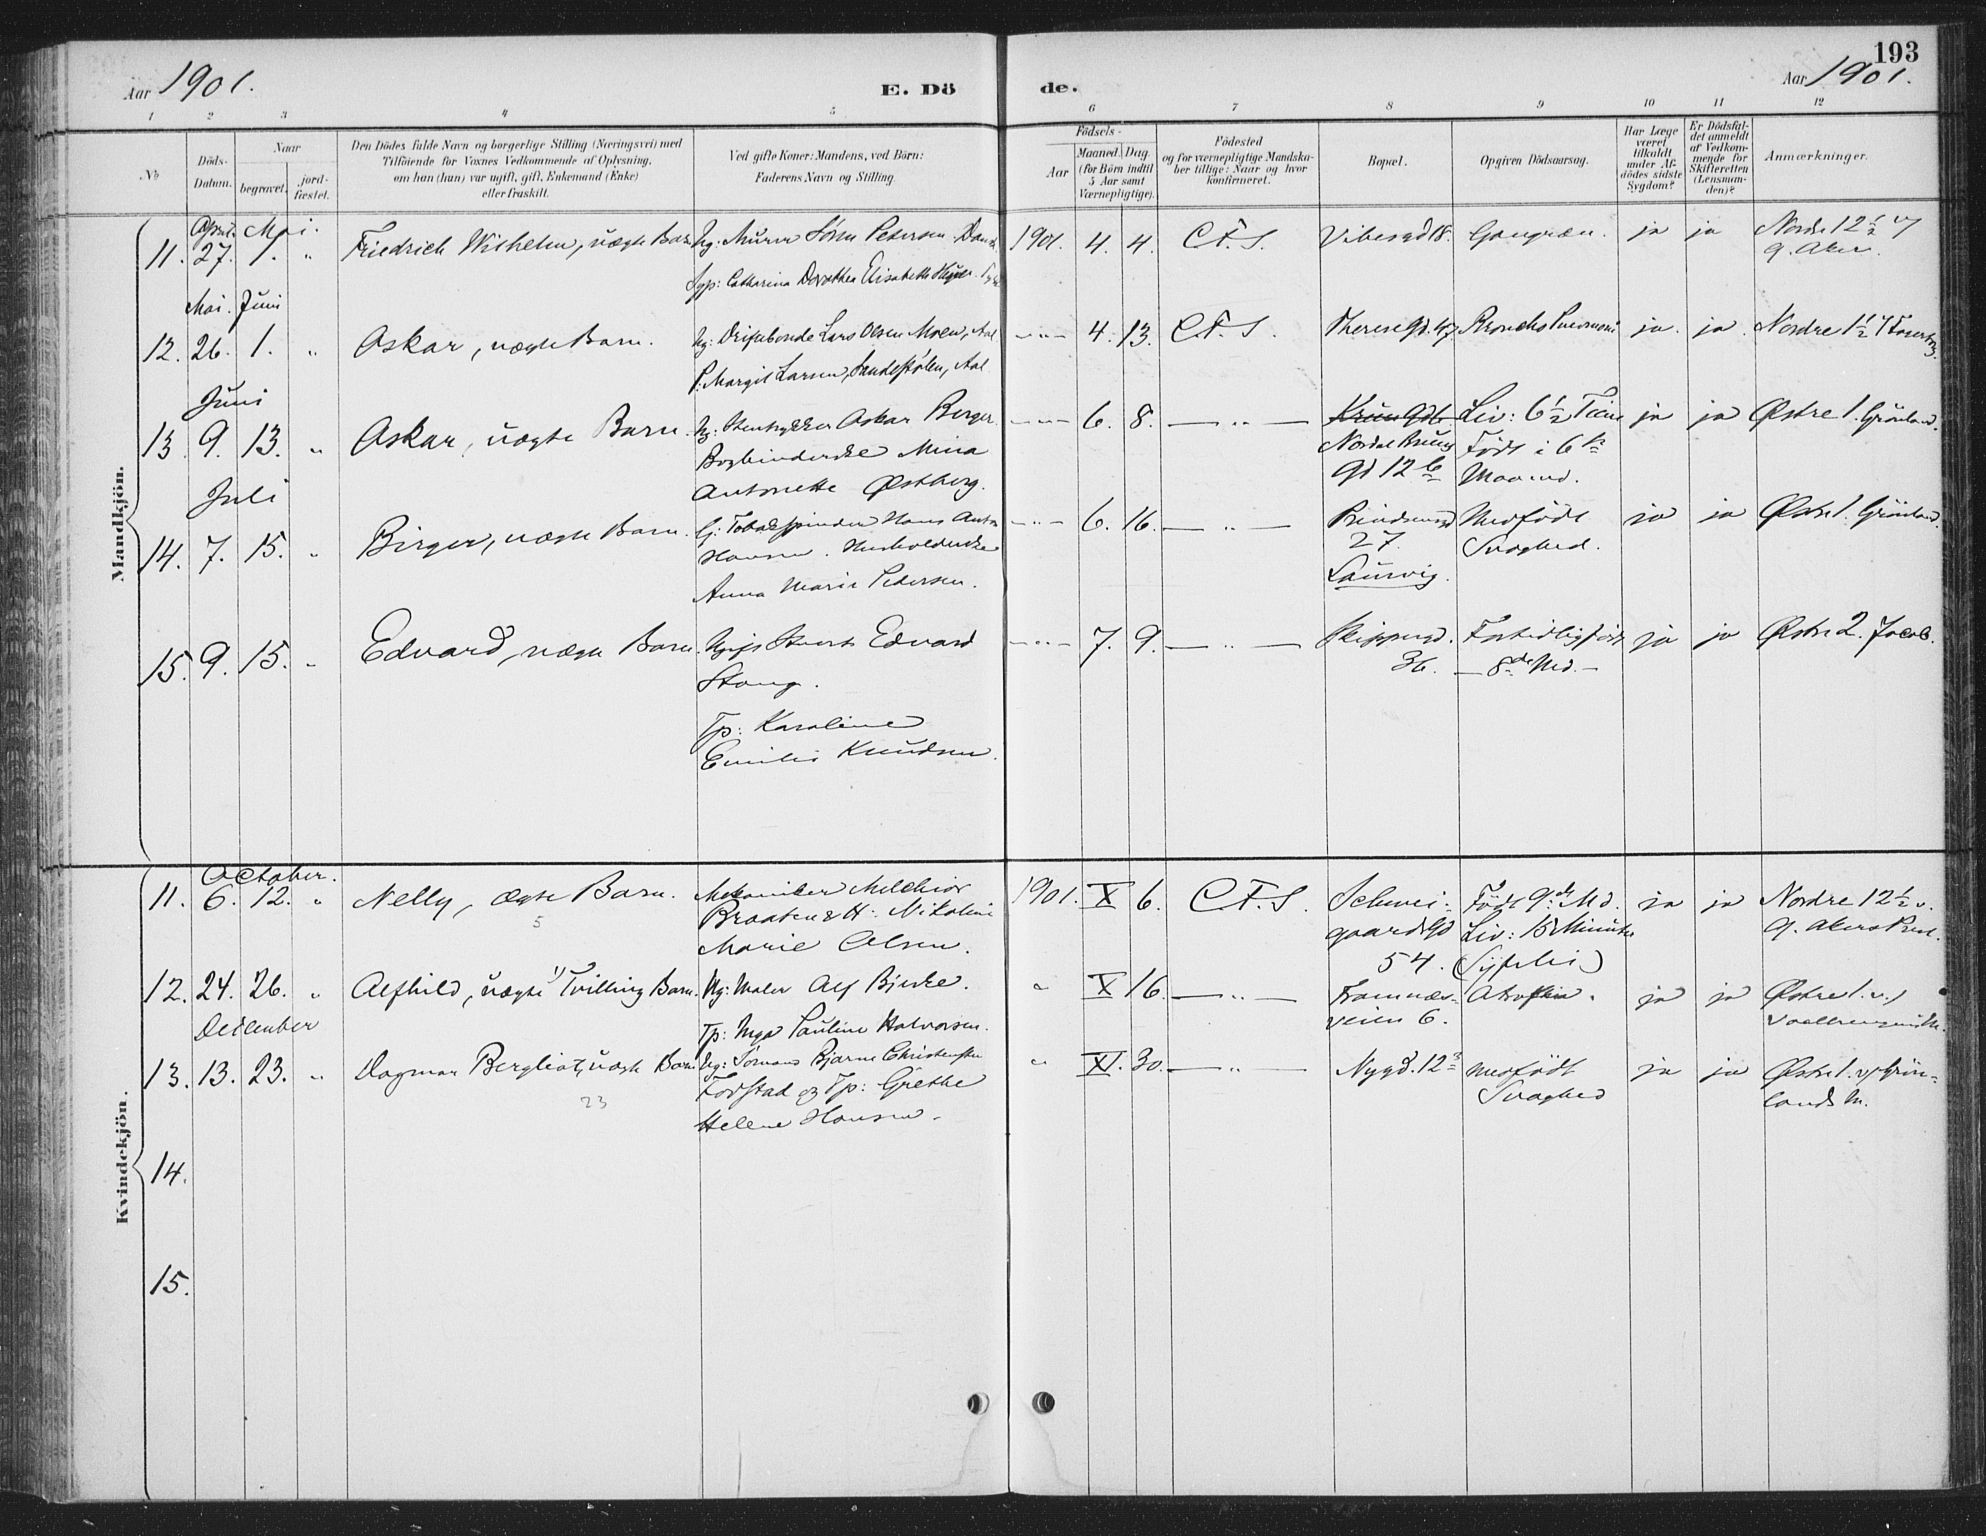 193
Aar 1901.
E. Dö
de.
Aar 1901.
1 2 3 4 5 6 7 8 9 10 11 12
No
Döds-
Datum.
Naar
begravet.
jord-
fæstet.
Den Dödes fulde Navn og borgerlige Stilling (Næringsvei) med
Tilföiende for Voxnes Vedkommende af Oplysning,
om han (hun) var ugift, gift, Enkemand (Enke)
eller fraskilt.
Ved gifte Koner: Mandens, ved Börn:
Faderens Navn og Stilling.
Födsels-
Aar
Maaned. Dag
(for Börn indtil
5 Aar samt
Værnepligtige).
Födested
og for værnepligtige Mandska-
ber tillige: Naar og hvor
konfirmeret.
Bopæl.
Opgiven Dödsaarsag.
Har Læge
været
tilkaldt
under Af-
dödes sidste
Sygdom?
Er Dödsfal-
det anmeldt
af Vedkom-
mende for
Skifteretten
(Lensman-
den)?
Anmærkninger.
Mandkjön.
April. Mai.
11. 27. 1. " Friedrich Wilhelm, uægte Barn
Ug: Murer Sören Petersen Dansk
Ugp: Catharina Dorothea Elisabeth
1901. 4. 4. C.F.S. Vibesgd 18. Gangræn. ja ja Nordre 12 1/2 v/
g. Aker.
Mai. Juni
12. 26. 1. " Askar, uægte Barn.
Ug: Driftebonde Lars Olsen Moen, Aal
P. Margit Larsen, Sandestölen, Aal
4. 13. C.F.S. Theresegd. 47 Broncho Pneumoni ja ja Nordre 1 1/2
Juni
13. 9. 13. " Askar, uægte Barn.
Ug: Stentrykker Askar Berger
Bogbinderske Mina
Antonette Østberg.
6. 8. — " —
Nordal Bruns
gd 12 b
Liv: 6 1/2 Time
Födt i 6te
Maaned.
ja ja Østre 1. Grönland.
Juli
14. 7. 15. " Birger, uægte Barn.
G: Tobakspinder Hans Anton
Hansen. Husholderske
Anna Marie Pedersen.
6. 16. — " —
Prindsensgd
27.
Laurvig.
Medfödt
Svaghed.
ja ja Østre 1. Grönland.
15. 9. 15. " Edvard, uægte Barn.
Edvard
Stang.
Tp: Karoline
Emilie Knudsen.
7. 9. — " —
Skippergd.
36.
Fortidlig födt
— 8de Md. —
ja ja Østre 2. Jacob.
Kvindekjön.
October.
11. 6. 12. " Nelly, ægte Barn.
5
Mekaniker Melchior
Braaten & H: Nikoline
Marie Olsen.
1901. X 6. C.F.S.
Schwei-
gaardsgd
54.
Födt 9de Md.
Liv: 15 Minuter
(Syfilis)
ja ja Nordre 12 1/2 v.
g. Akers Kirk.
12. 24. 26. " Alfhild, uægte 1) Tvilling Barn.
Ug: Maler Alf Bjerke.
Tp: Inga Pauline Halvorsen.
" X 16. — " —
Framnæs-
veien 6.
Atrofia.
ja ja Østre 1. v/
December
13. 13. 23. " Dagmar Bergliot, uægte Barn.
23
Ug: Sömand Bjarne Christensen
Forstad og Tp: Grethe
Helene Hansen.
" XI. 30. — " — Nygd. 12
medfödt
Svaghed
ja ja Østre 1. v/ Grön-
lands M.
14.
15.